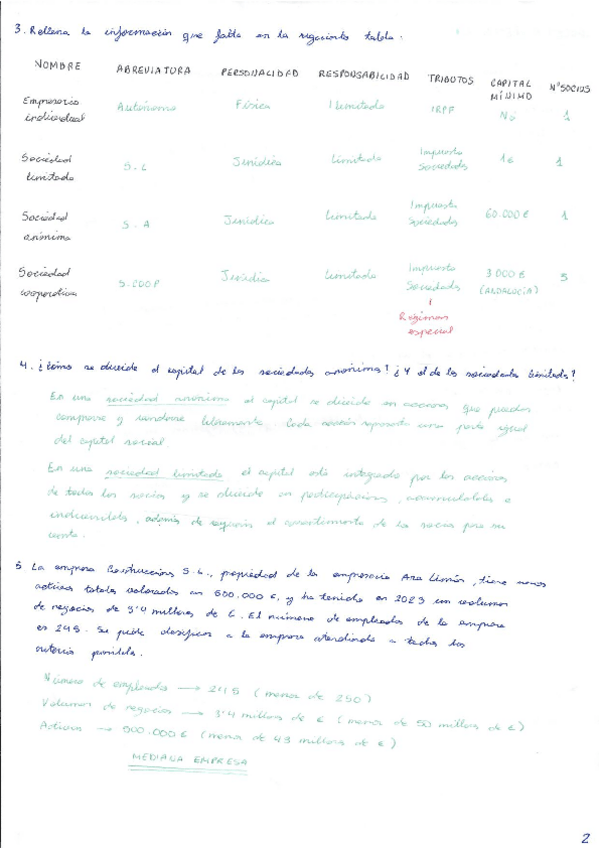 3. Rellena la información que falta en la siguiente tabla.
NOMBRE ABREVIATURA PERSONALIDAD RESPONSABILIDAD TRIBUTOS CAPITAL MÍNIMO Nº SOCIOS
Empresario individual Autónomo Física Ilimitada IRPF No 1
Sociedad limitada S.L Jurídica Limitada Impuesto Sociedades 1€ 1
Sociedad anónima S.A Jurídica Limitada Impuesto Sociedades 60.000€ 1
Sociedad cooperativa S.COOP Jurídica Limitada Impuesto Sociedades 3000€ (ANDALUCÍA) 3
Régimen especial
4. ¿Cómo se divide el capital de las sociedades anónimas? ¿Y el de las sociedades limitadas?
En una sociedad anónima el capital se divide en acciones que pueden
comprarse y venderse libremente. Cada acción representa una parte igual
del capital social.
En una sociedad limitada el capital está integrado por las acciones
de todos los socios y se divide en participaciones, acumulables e
indivisibles, además de requerir el consentimiento de los socios para su
venta.
5 La empresa Construccións S.L., propiedad de la empresaria Ana Limón, tiene unos
activos totales valorados en 500.000 €, y ha tenido en 2023 un volumen
de negocios de 3'4 millones de €. El número de empleados de la empresa
es 245. Se pide clasificar a la empresa atendiendo a todos los
criterios posibles.
Número de empleados → 245 (menos de 250)
Volumen de negocios → 3'4 millons de € (menos de 50 millons de €)
Activos → 500.000 € (menos de 43 millons de €)
MEDIANA EMPRESA
2